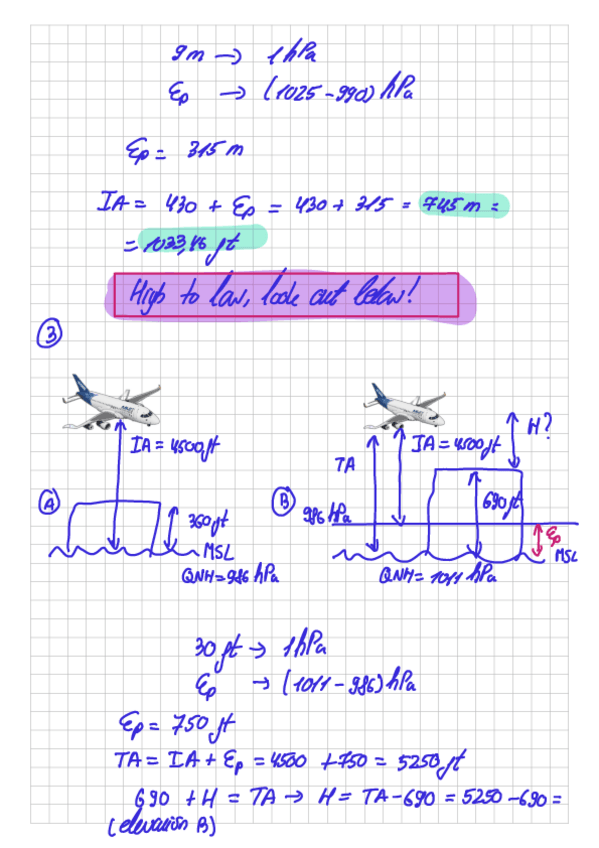 9m → 1 hPa
Ep → (1025-990) hPa
Ep = 315 m
IA = 430 + Ep = 430 + 315 = 745 m =
= 1033,46 ft
High to low, look out below!
3
IA = 4500ft
A
360ft
MSL
QNH = 986 hPa
H?
IA = 4500ft
TA
B
690ft
986 hPa
Ep
MSL
QNH = 1011 hPa
30 ft → 1 hPa
Ep → (1011 - 986) hPa
Ep = 750 ft
TA = IA + Ep = 4500 + 750 = 5250 ft
690 + H = TA → H = TA - 690 = 5250 - 690 =
(elevation B)